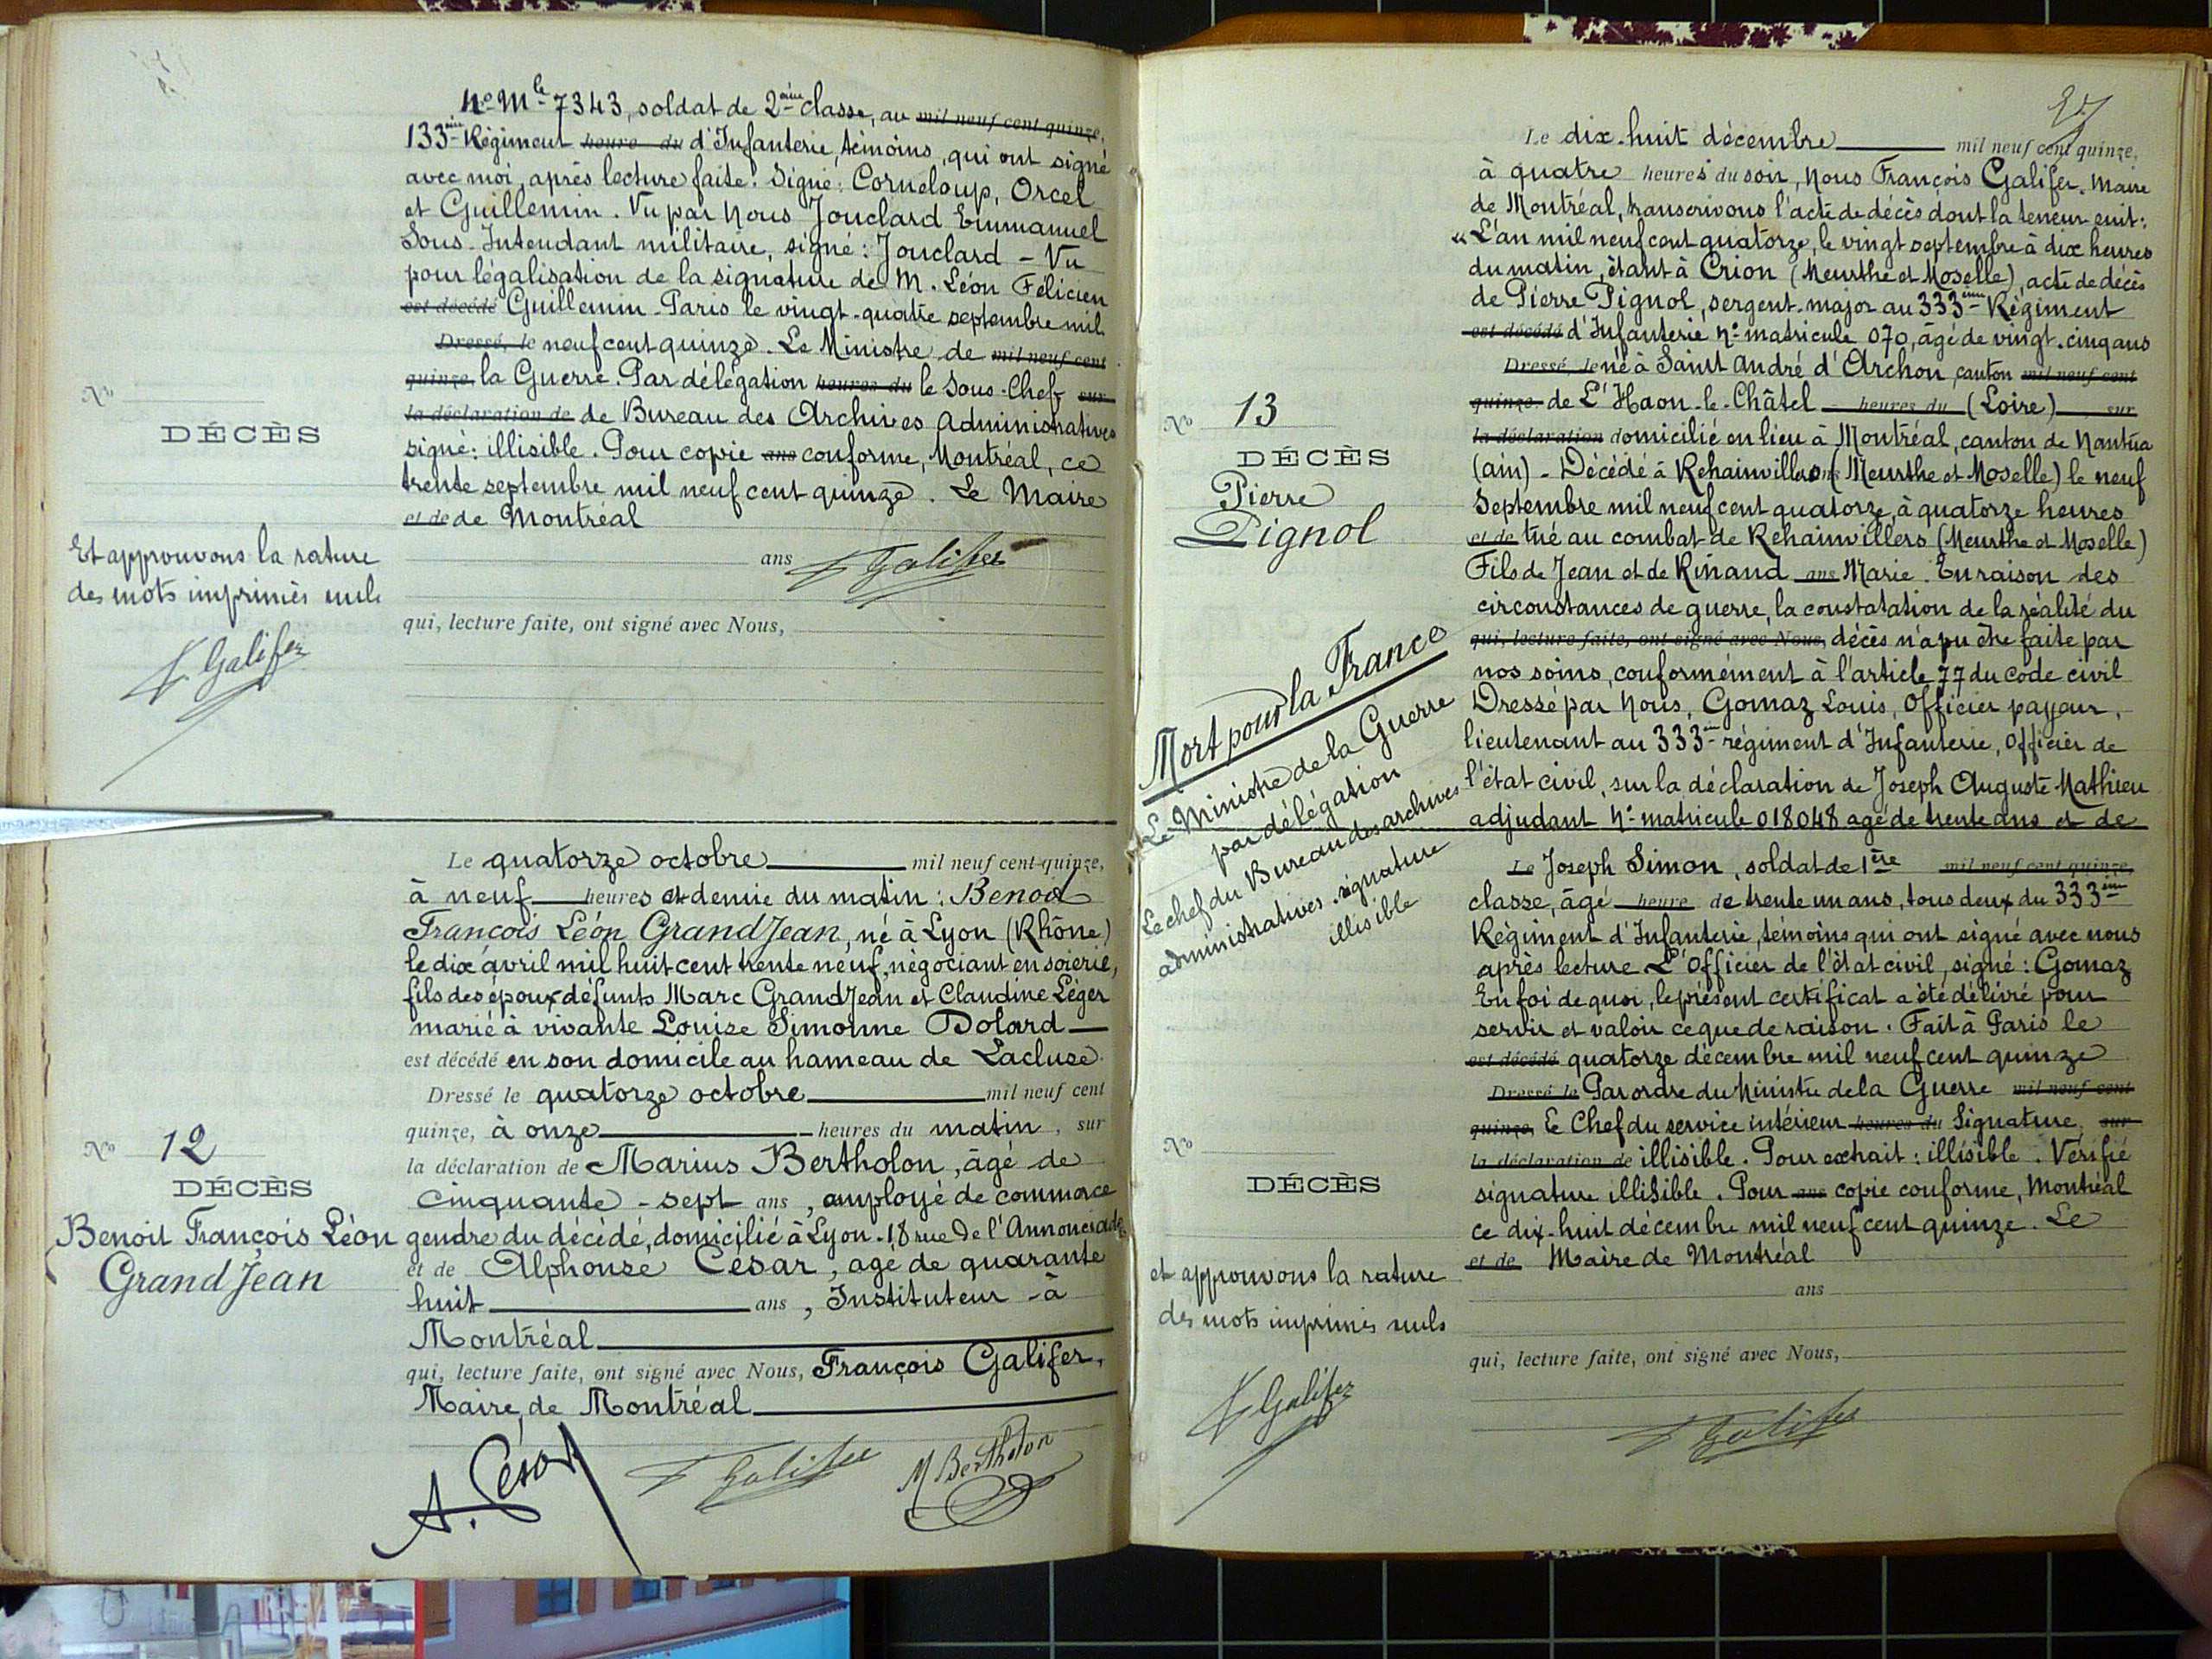 No Mle 7343, soldat de 2ème classe, au mil neuf cent quinze,
133ème Régiment heure du d'Infanterie, témoins, qui ont signé
avec moi, après lecture faite. Signé: Corneloup, Orcel
et Guillemin. Vu par Nous Jouclard Emmanuel
Sous-Intendant militaire, signé: Jouclard - Vu
pour légalisation de la signature de M. Léon Félicien
est décédé Guillemin. Paris le vingt-quatre septembre mil
Dressé, le neuf cent quinze. Le Ministre de mil neuf cent
quinze, la Guerre. Par délégation heures du le Sous-Chef sur
la déclaration de de Bureau des Archives Administratives
signé: illisible. Pour copie ans conforme, Montréal, ce
trente septembre mil neuf cent quinze. Le Maire
et de de Montréal
ans F Galifer
qui, lecture faite, ont signé avec Nous,
No
DÉCÈS
Et approuvons la rature
des mots imprimés nuls
F Galifer
Le quatorze octobre mil neuf cent quinze,
à neuf heures et demie du matin: Benoit
François Léon GrandJean, né à Lyon (Rhône)
le dix avril mil huit cent trente neuf, négociant en soierie,
fils des époux défunts Marc GrandJean et Claudine Léger
marié à vivante Louise Simonne Dolard
est décédé en son domicile au hameau de Lacluse.
Dressé le quatorze octobre mil neuf cent
quinze, à onze heures du matin, sur
la déclaration de Marius Bertholon, âgé de
cinquante-sept ans, employé de commerce
gendre du décédé, domicilié à Lyon. 18 rue de l'Annonciade
et de Alphonse César, âgé de quarante
huit ans, Instituteur à
Montréal
qui, lecture faite, ont signé avec Nous, François Galifer,
Maire, de Montréal
A. César F Galifer M Bertholon
No 12
DÉCÈS
Benoit François Léon
GrandJean
Le dix-huit décembre mil neuf cent quinze,
à quatre heures du soir, Nous François Galifer, Maire
de Montréal, transcrivons l'acte de décès dont la teneur suit:
"L'an mil neuf cent quatorze, le vingt septembre à dix heures
du matin, étant à Crion (Meurthe et Moselle), acte de décès
de Pierre Pignol, sergent-major au 333ème Régiment
est décédé d'Infanterie No matricule 070, âgé de vingt-cinq ans
Dressé, le né à Saint André d'Archon, canton mil neuf cent
quinze de L'Haon-le-Châtel heures du (Loire) sur
la déclaration domicilié en lieu à Montréal, canton de Nantua
(ain) - Décédé à Rehainvillers (Meurthe et Moselle) le neuf
Septembre mil neuf cent quatorze, à quatorze heures
et de tué au combat de Rehainvillers (Meurthe et Moselle)
Fils de Jean et de Rinand ans Marie. En raison des
circonstances de guerre, la constatation de la réalité du
qui, lecture faite, ont signé avec Nous, décès n'a pu être faite par
nos soins, conformément à l'article 77 du Code civil
Dressé par Nous, Gomaz Louis, Officier payeur,
lieutenant au 333ème régiment d'Infanterie, Officier de
l'état civil, sur la déclaration de Joseph Auguste Mathieu
adjudant No matricule 018048 agé de trente ans et de
No 13
DÉCÈS
Pierre
Pignol
Mort pour la France
Le Ministre de la Guerre
par délégation
Le chef du Bureau des archives
administratives. signature
illisible
Le Joseph Simon, soldat de 1ère mil neuf cent quinze,
classe, âgé heure de trente un ans, tous deux du 333ème
Régiment d'Infanterie, témoins qui ont signé avec nous
après lecture L'Officier de l'état civil, signé: Gomaz
En foi de quoi, le présent certificat a été délivré pour
servir et valoir ce que de raison. Fait à Paris le
est décédé quatorze décembre mil neuf cent quinze
Dressé le Par ordre du Ministre de la Guerre mil neuf cent
quinze, Le Chef du service intérieur heures du Signature, sur
la déclaration de illisible. Pour extrait: illisible. Vérifié
signature illisible. Pour ans copie conforme, Montréal
ce dix-huit décembre mil neuf cent quinze. Le
et de Maire de Montréal
ans
qui, lecture faite, ont signé avec Nous,
F Galifer
No
DÉCÈS
et approuvons la rature
des mots imprimés nuls
F Galifer